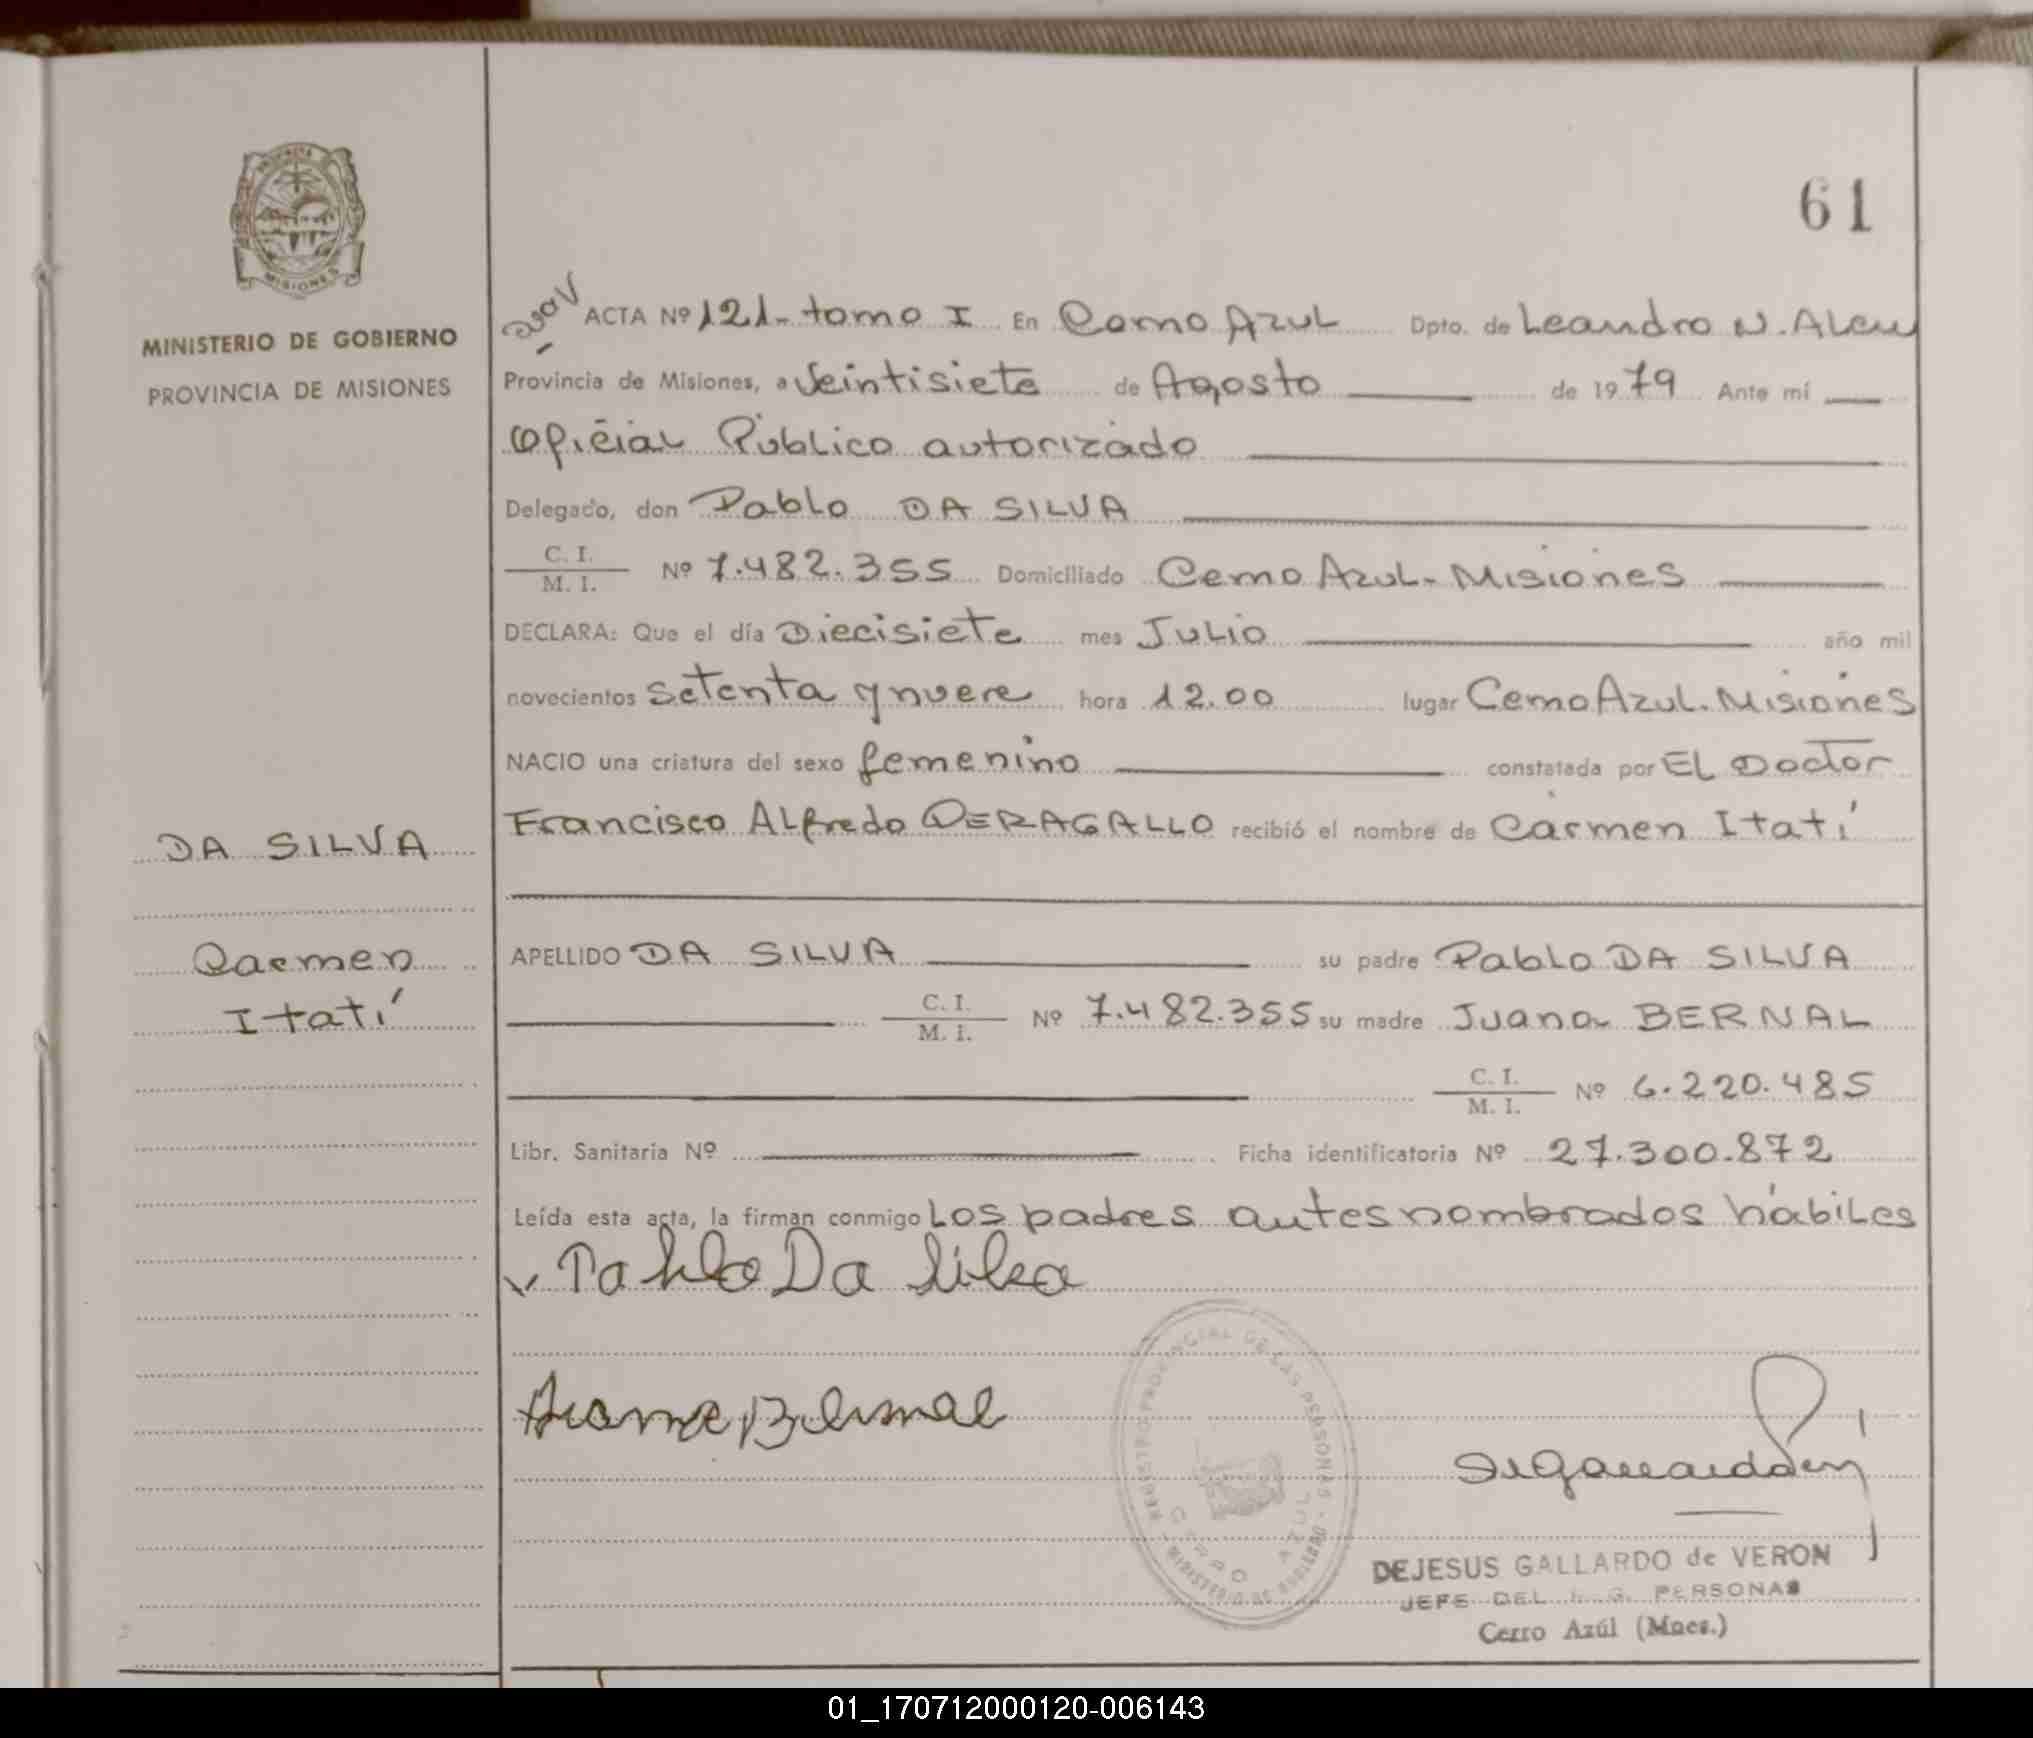 61
MINISTERIO DE GOBIERNO
PROVINCIA DE MISIONES
ACTA Nº 121- tomo I En Cerro Azul Dpto. de Leandro N. Alem
Provincia de Misiones, a Veintisiete de Agosto de 1979 Ante mí
Oficial Público autorizado
Delegado, don Pablo DA SILVA
C. I.
M. I. Nº 7.482.355 Domiciliado Cerro Azul- Misiones
DECLARA: Que el día Diecisiete mes Julio año mil
novecientos setenta y nueve hora 12.00 lugar Cerro Azul. Misiones
NACIO una criatura del sexo femenino constatada por El Doctor
Francisco Alfredo PERAGALLO recibió el nombre de Carmen Itatí
DA SILVA
Carmen
Itatí
APELLIDO DA SILVA su padre Pablo DA SILVA
C. I.
M. I. Nº 7.482.355 su madre Juana BERNAL
C. I.
M. I. Nº 6.220.485
Libr. Sanitaria Nº Ficha identificatoria Nº 27.300.872
Leída esta acta, la firman conmigo Los padres antes nombrados hábiles
Pablo Da Silva
Juana Bernal
REGISTRO PROVINCIAL DE LAS PERSONAS - MINISTERIO DE GOBIERNO
CERRO AZUL
DEJESUS GALLARDO de VERON
JEFE DEL PERSONAS
Cerro Azúl (Mnes.)
01_170712000120-006143